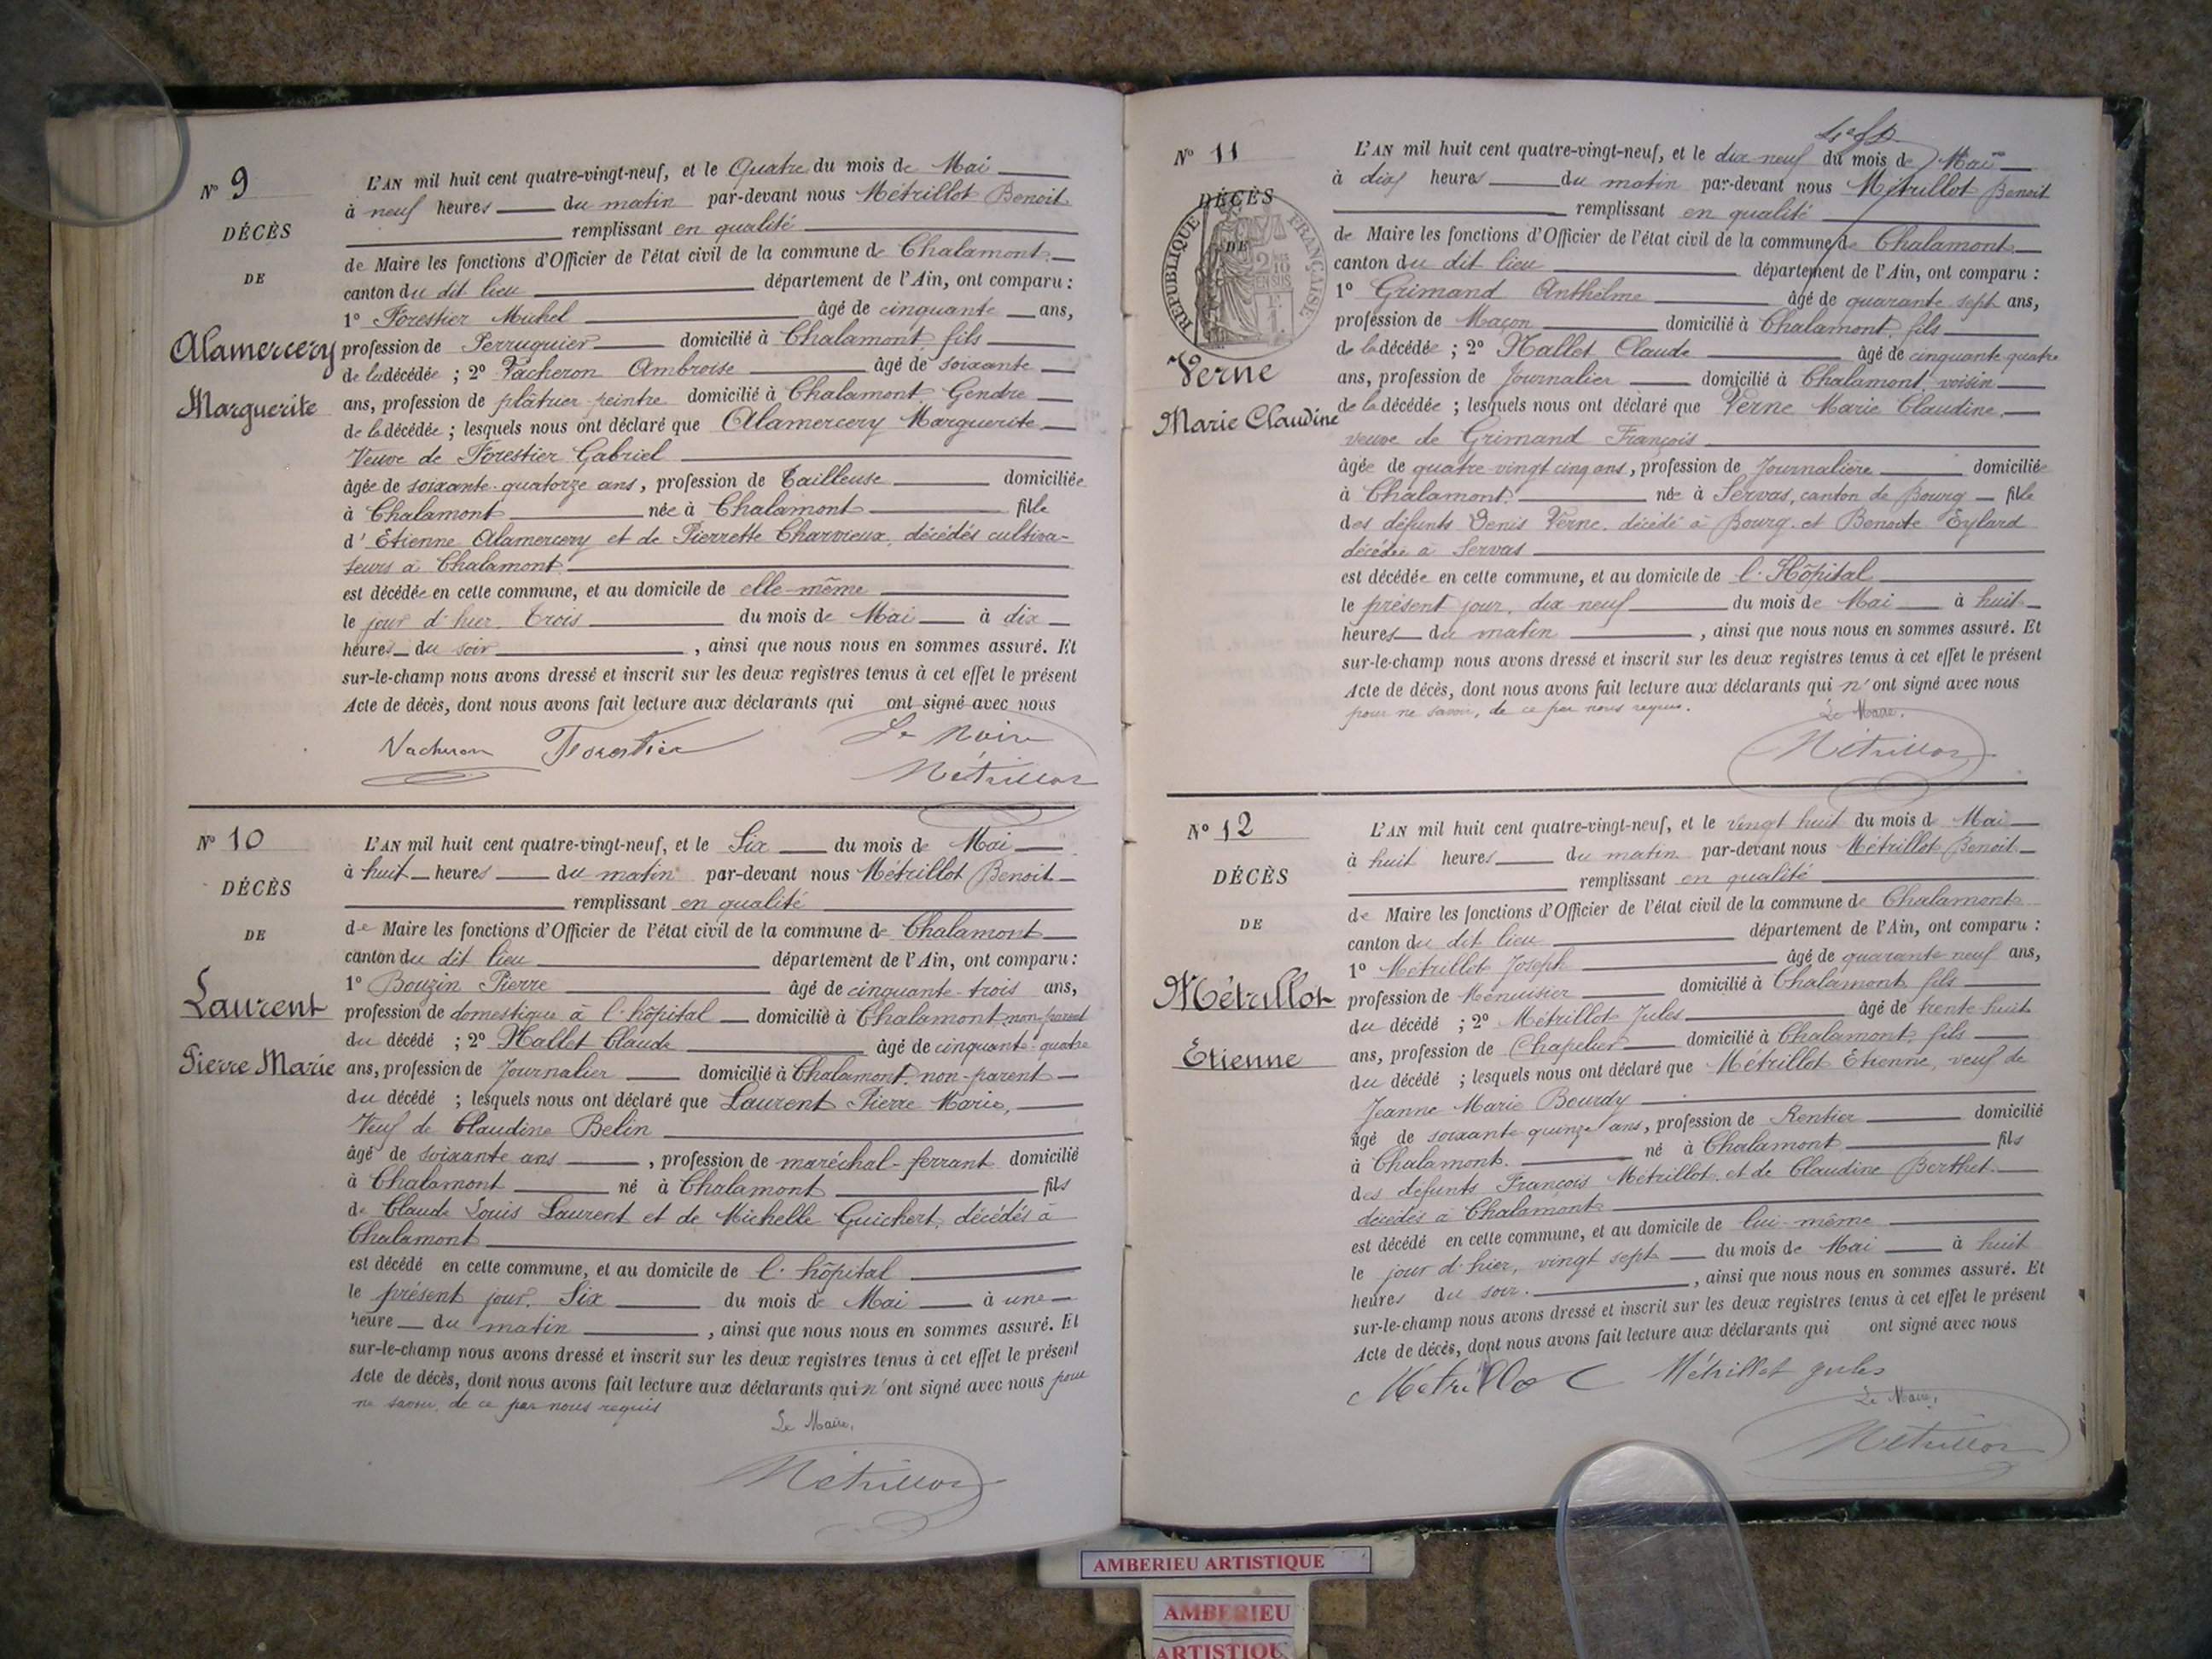 N° 9
DÉCÈS
DE
Alamercery
Marguerite
L'AN mil huit cent quatre-vingt-neuf, et le Quatre du mois de Mai
à neuf heures du matin par-devant nous Métrillot Benoit
remplissant en qualité
de Maire les fonctions d'Officier de l'état civil de la commune de Chalamont
canton du dit lieu département de l'Ain, ont comparu :
1° Forestier Michel âgé de cinquante ans,
profession de Perruquier domicilié à Chalamont, fils
de la décédée ; 2° Vacheron Ambroise âgé de soixante
ans, profession de plâtrier peintre domicilié à Chalamont, Gendre
de la décédée ; lesquels nous ont déclaré que Alamercery Marguerite
Veuve de Forestier Gabriel
âgée de soixante-quatorze ans, profession de Tailleuse domiciliée
à Chalamont née à Chalamont fille
d'Etienne Alamercery et de Pierrette Charvieux, décédés cultiva-
teurs à Chalamont
est décédée en cette commune, et au domicile de elle-même
le jour d'hier Trois du mois de Mai à dix
heures du soir, ainsi que nous nous en sommes assuré. Et
sur-le-champ nous avons dressé et inscrit sur les deux registres tenus à cet effet le présent
Acte de décès, dont nous avons fait lecture aux déclarants qui ont signé avec nous
Vacheron Forestier Le Maire
Métrillot
N° 10
DÉCÈS
DE
Laurent
Pierre Marie
L'AN mil huit cent quatre-vingt-neuf, et le Six du mois de Mai
à huit heures du matin par-devant nous Métrillot Benoit
remplissant en qualité
de Maire les fonctions d'Officier de l'état civil de la commune de Chalamont
canton du dit lieu département de l'Ain, ont comparu :
1° Bouzin Pierre âgé de cinquante-trois ans,
profession de domestique à l'hôpital domicilié à Chalamont non-parent
du décédé ; 2° Hallet Claude âgé de cinquante-quatre
ans, profession de Journalier domicilié à Chalamont, non-parent
du décédé ; lesquels nous ont déclaré que Laurent Pierre Marie,
Veuf de Claudine Belin
âgé de soixante ans, profession de maréchal-ferrant domicilié
à Chalamont né à Chalamont fils
de Claude Louis Laurent et de Michelle Guichert, décédés à
Chalamont
est décédé en cette commune, et au domicile de l'hôpital
le présent jour, Six du mois de Mai à une
heure du matin, ainsi que nous nous en sommes assuré. Et
sur-le-champ nous avons dressé et inscrit sur les deux registres tenus à cet effet le présent
Acte de décès, dont nous avons fait lecture aux déclarants qui n'ont signé avec nous pour
ne savoir, de ce par nous requis
Le Maire,
Métrillot
N° 11
DÉCÈS
DE
RÉPUBLIQUE FRANÇAISE
2/10 EN SUS
Verne
Marie Claudine
L'AN mil huit cent quatre-vingt-neuf, et le dix neuf du mois de Mai
à dix heures du matin par-devant nous Métrillot Benoit
remplissant en qualité
de Maire les fonctions d'Officier de l'état civil de la commune de Chalamont
canton du dit lieu département de l'Ain, ont comparu :
1° Grimand Anthelme âgé de quarante sept ans,
profession de Maçon domicilié à Chalamont, fils
de la décédée ; 2° Hallet Claude âgé de cinquante quatre
ans, profession de Journalier domicilié à Chalamont, voisin
de la décédée ; lesquels nous ont déclaré que Verne Marie Claudine,
veuve de Grimand François
âgée de quatre-vingt cinq ans, profession de Journalière domiciliée
à Chalamont née à Servas, canton de Bourg fille
des défunts Denis Verne, décédé à Bourg, et Benoite Eylard
décédée à Servas
est décédée en cette commune, et au domicile de l'Hôpital
le présent jour, dix neuf du mois de Mai à huit
heures du matin, ainsi que nous nous en sommes assuré. Et
sur-le-champ nous avons dressé et inscrit sur les deux registres tenus à cet effet le présent
Acte de décès, dont nous avons fait lecture aux déclarants qui n'ont signé avec nous
pour ne savoir, de ce par nous requis.
Le Maire,
Métrillot
N° 12
DÉCÈS
DE
Métrillot
Etienne
L'AN mil huit cent quatre-vingt-neuf, et le vingt huit du mois d Mai
à huit heures du matin par-devant nous Métrillot Benoit
remplissant en qualité
de Maire les fonctions d'Officier de l'état civil de la commune de Chalamont
canton du dit lieu département de l'Ain, ont comparu :
1° Métrillot Joseph âgé de quarante neuf ans,
profession de Menuisier domicilié à Chalamont, fils
du décédé ; 2° Métrillot Jules âgé de trente-huit
ans, profession de Chapelier domicilié à Chalamont, fils
du décédé ; lesquels nous ont déclaré que Métrillot Etienne, veuf de
Jeanne Marie Bourdy
âgé de soixante quinze ans, profession de Rentier domicilié
à Chalamont. né à Chalamont fils
des défunts François Métrillot, et de Claudine Berthet
décédés à Chalamont
est décédé en cette commune, et au domicile de lui-même
le jour d'hier, vingt sept du mois de Mai à huit
heures du soir., ainsi que nous nous en sommes assuré. Et
sur-le-champ nous avons dressé et inscrit sur les deux registres tenus à cet effet le présent
Acte de décès, dont nous avons fait lecture aux déclarants qui ont signé avec nous
Métrillot Métrillot Jules
Le Maire,
Métrillot
AMBERIEU ARTISTIQUE
AMBERIEU
ARTISTIQUE